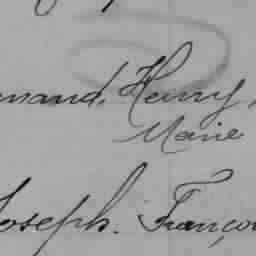 mand, Henry,
Marie
Joseph. Françoi